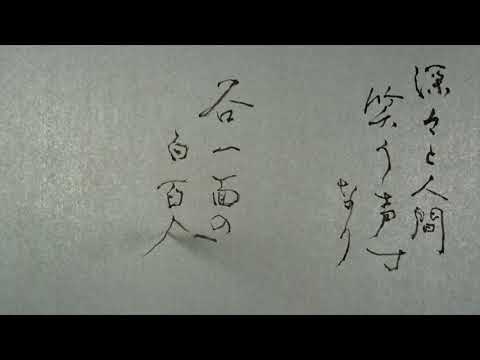 深々と人間
笑う声す
なり
谷一面の
白百